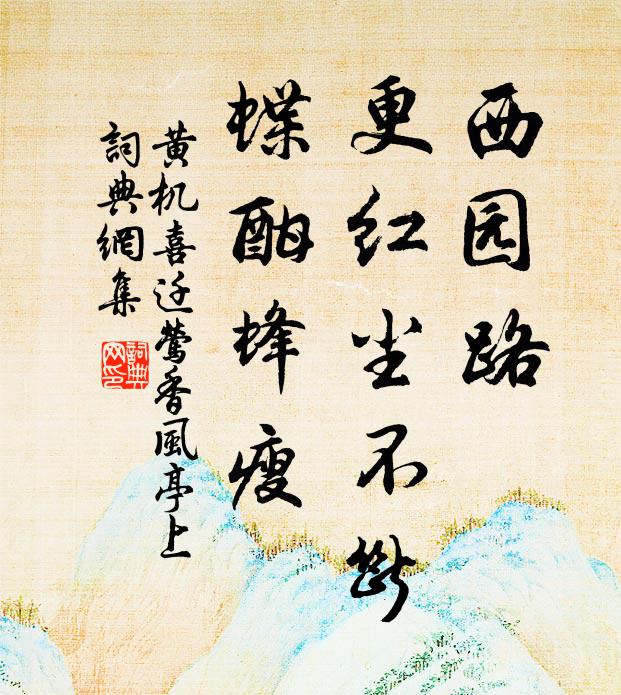 西园路
更红尘不断
蝶酣蜂瘦
黄机喜迁莺香風亭上
詞典網集
詞典网印